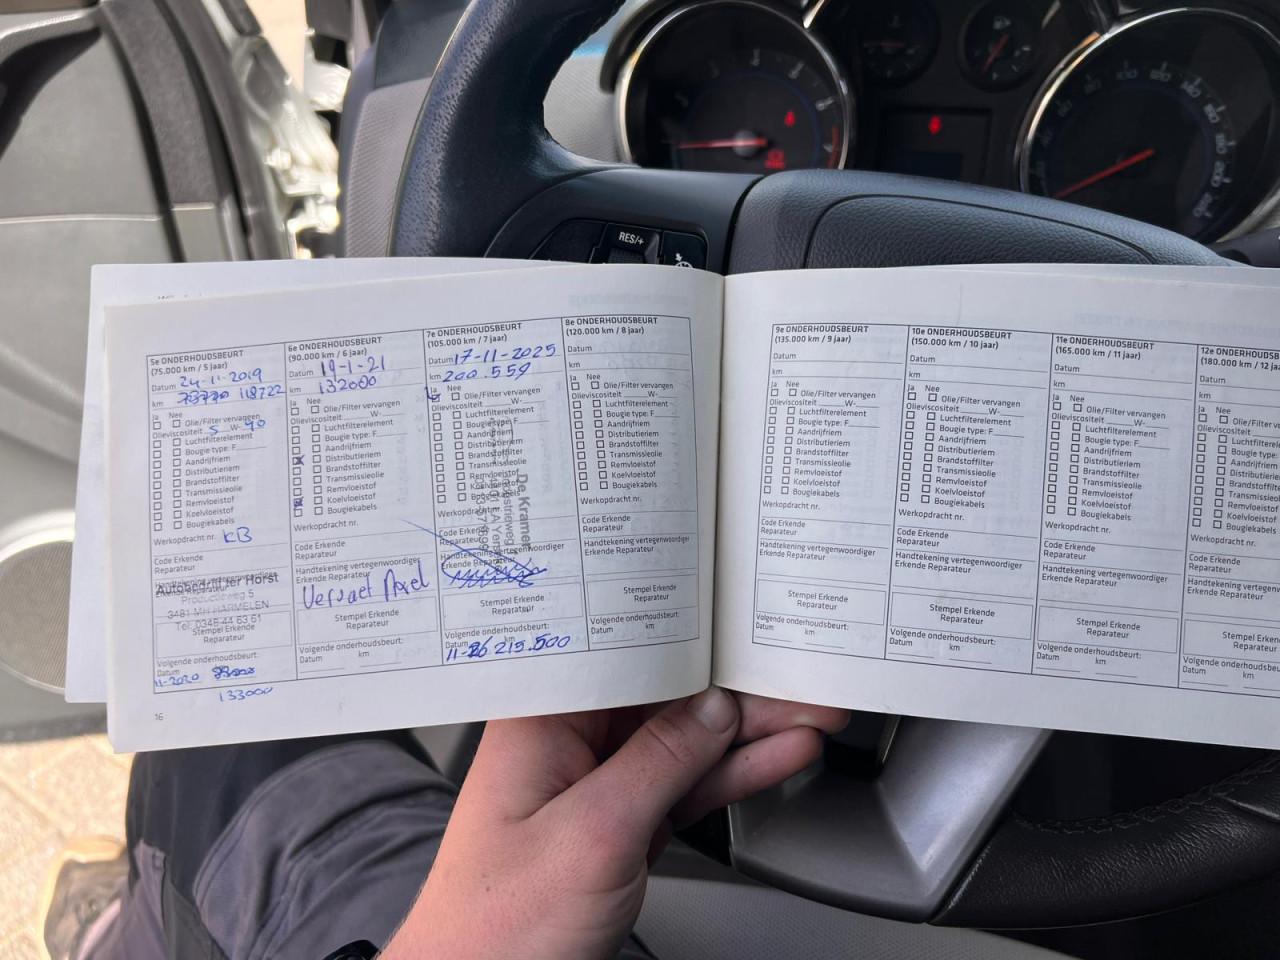 RES/+
5e ONDERHOUDSBEURT
(75.000 km / 5 jaar)
Datum 24-11-2019
km 118722
Ja Nee
Olie/Filter vervangen
Olieviscositeit 5 W- 40
Luchtfilterelement
Bougie type: F
Aandrijfriem
Distributieriem
Brandstoffilter
Transmissieolie
Remvloeistof
Koelvloeistof
Bougiekabels
Werkopdracht nr. KB
Code Erkende
Reparateur
Autobedrijf ter Horst
Productieweg 5
3481 MH HARMELEN
Tel. 0348 44 63 61
Stempel Erkende
Reparateur
Volgende onderhoudsbeurt:
Datum km
11-2020
133000
16
6e ONDERHOUDSBEURT
(90.000 km / 6 jaar)
Datum 19-1-21
km 132000
Ja Nee
Olie/Filter vervangen
Olieviscositeit W-
Luchtfilterelement
Bougie type: F
Aandrijfriem
Distributieriem
Brandstoffilter
Transmissieolie
Remvloeistof
Koelvloeistof
Bougiekabels
Werkopdracht nr.
Code Erkende
Reparateur
Handtekening vertegenwoordiger
Erkende Reparateur
Stempel Erkende
Reparateur
Volgende onderhoudsbeurt:
Datum km
7e ONDERHOUDSBEURT
(105.000 km / 7 jaar)
Datum 17-11-2025
km 200.559
Ja Nee
Olie/Filter vervangen
Olieviscositeit W-
Luchtfilterelement
Bougie type: F
Aandrijfriem
Distributieriem
Brandstoffilter
Transmissieolie
Remvloeistof
Koelvloeistof
Bougiekabels
Werkopdracht nr.
De Kramer
Code Erkende
Reparateur
Handtekening vertegenwoordiger
Erkende Reparateur
Stempel Erkende
Reparateur
Volgende onderhoudsbeurt:
Datum km
11-26 215.500
8e ONDERHOUDSBEURT
(120.000 km / 8 jaar)
Datum
km
Ja Nee
Olie/Filter vervangen
Olieviscositeit W-
Luchtfilterelement
Bougie type: F
Aandrijfriem
Distributieriem
Brandstoffilter
Transmissieolie
Remvloeistof
Koelvloeistof
Bougiekabels
Werkopdracht nr.
Code Erkende
Reparateur
Handtekening vertegenwoordiger
Erkende Reparateur
Stempel Erkende
Reparateur
Volgende onderhoudsbeurt:
Datum km
9e ONDERHOUDSBEURT
(135.000 km / 9 jaar)
Datum
km
Ja Nee
Olie/Filter vervangen
Olieviscositeit W-
Luchtfilterelement
Bougie type: F
Aandrijfriem
Distributieriem
Brandstoffilter
Transmissieolie
Remvloeistof
Koelvloeistof
Bougiekabels
Werkopdracht nr.
Code Erkende
Reparateur
Handtekening vertegenwoordiger
Erkende Reparateur
Stempel Erkende
Reparateur
Volgende onderhoudsbeurt:
Datum km
10e ONDERHOUDSBEURT
(150.000 km / 10 jaar)
Datum
km
Ja Nee
Olie/Filter vervangen
Olieviscositeit W-
Luchtfilterelement
Bougie type: F
Aandrijfriem
Distributieriem
Brandstoffilter
Transmissieolie
Remvloeistof
Koelvloeistof
Bougiekabels
Werkopdracht nr.
Code Erkende
Reparateur
Handtekening vertegenwoordiger
Erkende Reparateur
Stempel Erkende
Reparateur
Volgende onderhoudsbeurt:
Datum km
11e ONDERHOUDSBEURT
(165.000 km / 11 jaar)
Datum
km
Ja Nee
Olie/Filter vervangen
Olieviscositeit W-
Luchtfilterelement
Bougie type: F
Aandrijfriem
Distributieriem
Brandstoffilter
Transmissieolie
Remvloeistof
Koelvloeistof
Bougiekabels
Werkopdracht nr.
Code Erkende
Reparateur
Handtekening vertegenwoordiger
Erkende Reparateur
Stempel Erkende
Reparateur
Volgende onderhoudsbeurt:
Datum km
12e ONDERHOUDSB
(180.000 km / 12 ja
Datum
km
Ja Nee
Olie/Filter
Olieviscositeit
Luchtfilterel
Bougie type:
Aandrijfriem
Distributieri
Brandstoffilt
Transmissieo
Remvloeistof
Koelvloeistof
Bougiekabels
Werkopdracht nr.
Code Erkende
Reparateur
Handtekening verteg
Erkende Reparateur
Stempel Erke
Reparateur
Volgende onderhoudsbeu
Datum km